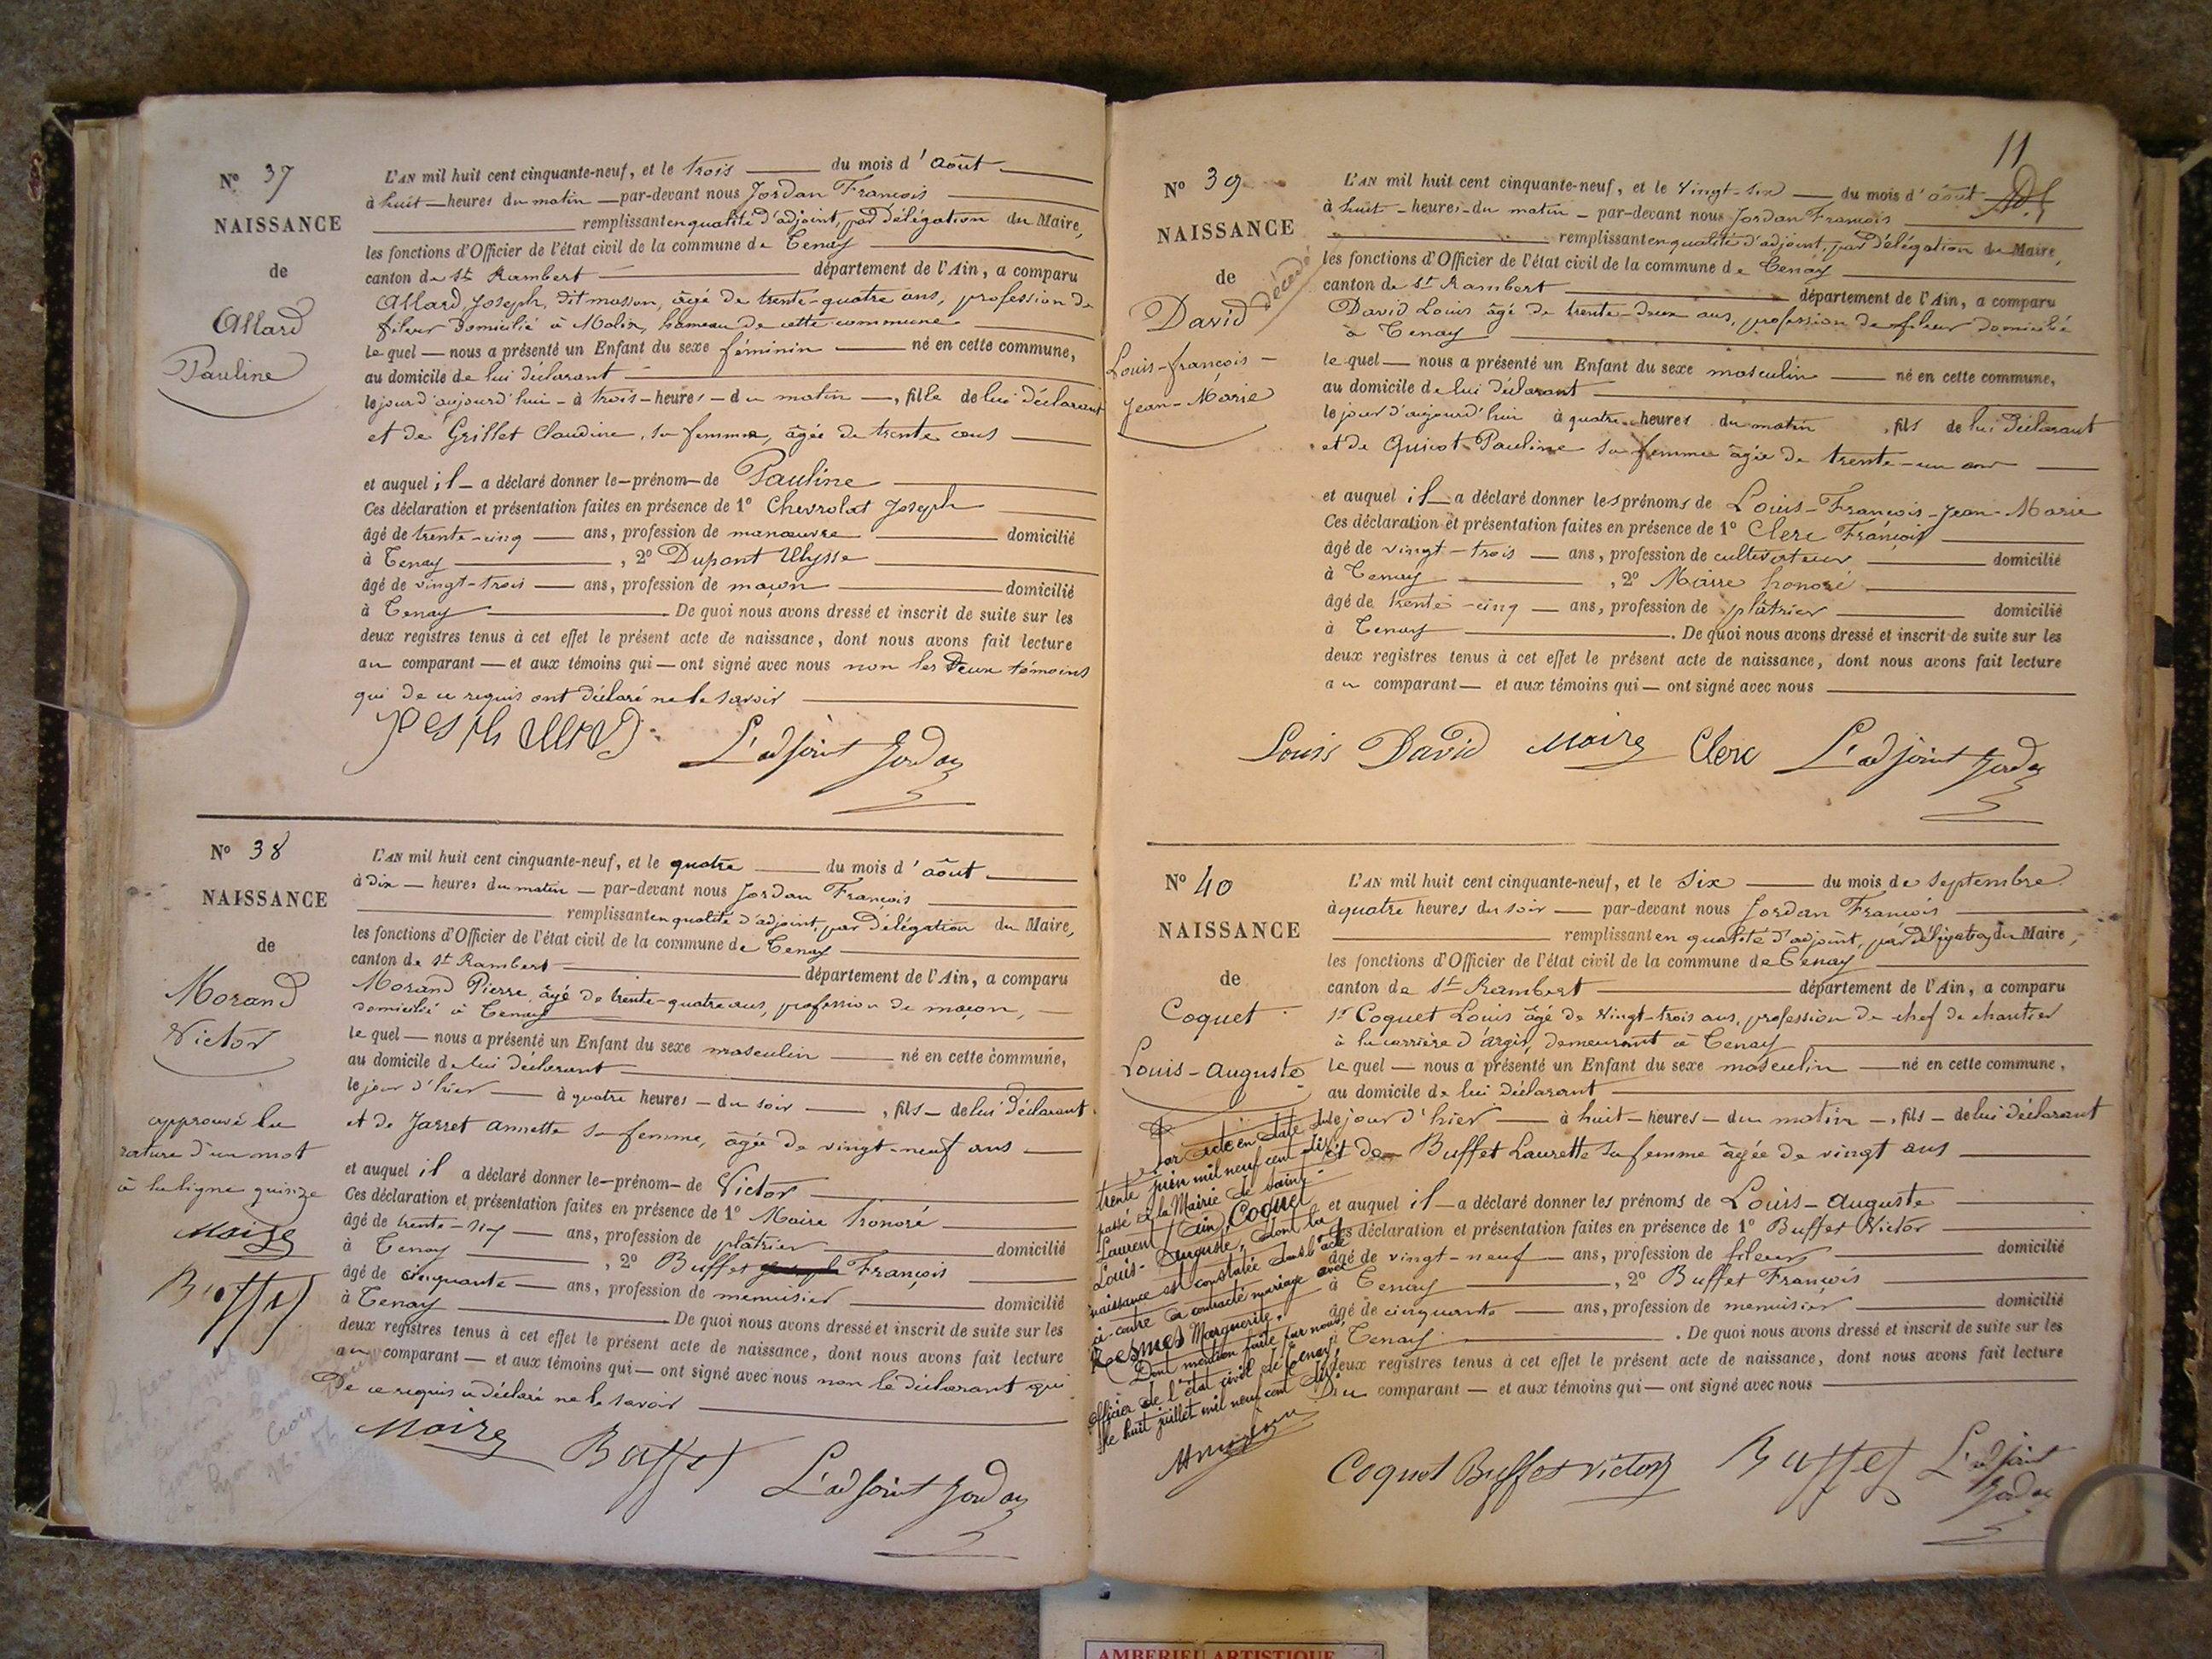 N° 37
NAISSANCE
de
Allard
Pauline
L'AN mil huit cent cinquante-neuf, et le trois du mois d'août
à huit heures du matin par-devant nous Jordan François
remplissant en qualité d'adjoint, par délégation du Maire,
les fonctions d'Officier de l'état civil de la commune de Tenay
canton de St Rambert département de l'Ain, a comparu
Allard Joseph, dit masson, âgé de trente-quatre ans, profession de
fileur domicilié à Malix, hameau de cette commune
lequel nous a présenté un Enfant du sexe féminin né en cette commune,
au domicile de lui déclarant
le jour d'aujourd'hui à trois heures du matin, fille de lui déclarant
et de Grillet Claudine, sa femme, âgée de trente ans
et auquel il a déclaré donner le prénom de Pauline
Ces déclaration et présentation faites en présence de 1° Chevrolat Joseph
âgé de trente-cinq ans, profession de manœuvre domicilié
à Tenay, 2° Dupont Ulysse
âgé de vingt-trois ans, profession de maçon domicilié
à Tenay De quoi nous avons dressé et inscrit de suite sur les
deux registres tenus à cet effet le présent acte de naissance, dont nous avons fait lecture
au comparant et aux témoins qui ont signé avec nous non les deux témoins
qui de ce requis ont déclaré ne le savoir
L'adjoint Jordan
N° 38
NAISSANCE
de
Morand
Victor
approuvé la
rature d'un mot
à la ligne quinze
Maire
Buffet
L'AN mil huit cent cinquante-neuf, et le quatre du mois d'août
à dix heures du matin par-devant nous Jordan François
remplissant en qualité d'adjoint, par délégation du Maire,
les fonctions d'Officier de l'état civil de la commune de Tenay
canton de St Rambert département de l'Ain, a comparu
Morand Pierre âgé de trente-quatre ans, profession de maçon,
domicilié à Tenay
lequel nous a présenté un Enfant du sexe masculin né en cette commune,
au domicile de lui déclarant
le jour d'hier à quatre heures du soir, fils de lui déclarant
et de Jarret annette sa femme, âgée de vingt-neuf ans
et auquel il a déclaré donner le prénom de Victor
Ces déclaration et présentation faites en présence de 1° Maire honoré
âgé de trente-six ans, profession de plâtrier domicilié
à Tenay, 2° Buffet François
âgé de cinquante ans, profession de menuisier domicilié
à Tenay De quoi nous avons dressé et inscrit de suite sur les
deux registres tenus à cet effet le présent acte de naissance, dont nous avons fait lecture
au comparant et aux témoins qui ont signé avec nous non le déclarant qui
de ce requis a déclaré ne le savoir
Maire Buffet L'adjoint Jordan
11
N° 39
NAISSANCE
de
David décédé
Louis-françois-
Jean-Marie
L'AN mil huit cent cinquante-neuf, et le vingt-six du mois d'août
à huit heures du matin par-devant nous Jordan François
remplissant en qualité d'adjoint, par délégation du Maire,
les fonctions d'Officier de l'état civil de la commune de Tenay
canton de St Rambert département de l'Ain, a comparu
David Louis âgé de trente-deux ans, profession de fileur domicilié
à Tenay
lequel nous a présenté un Enfant du sexe masculin né en cette commune,
au domicile de lui déclarant
le jour d'aujourd'hui à quatre heures du matin, fils de lui déclarant
et de Quinot Pauline sa femme âgée de trente-un ans
et auquel il a déclaré donner les prénoms de Louis-François-Jean-Marie
Ces déclaration et présentation faites en présence de 1° Clerc François
âgé de vingt-trois ans, profession de cultivateur domicilié
à Tenay, 2° Maire honoré
âgé de trente-cinq ans, profession de plâtrier domicilié
à Tenay. De quoi nous avons dressé et inscrit de suite sur les
deux registres tenus à cet effet le présent acte de naissance, dont nous avons fait lecture
au comparant et aux témoins qui ont signé avec nous
Louis David Maire Clerc L'adjoint Jordan
N° 40
NAISSANCE
de
Coquet
Louis-auguste
Par acte en date du
trente juin mil neuf cent dix
passé en la Mairie de Saint-
Laurent (Ain), Coquet
Louis-Auguste, dont la
naissance est constatée dans l'acte
ci-contre a contracté mariage avec
Resmes Marguerite.
Dont mention faite par nous,
officier de l'état civil de Tenay,
le huit juillet mil neuf cent dix
L'AN mil huit cent cinquante-neuf, et le six du mois de septembre
à quatre heures du soir par-devant nous Jordan François
remplissant en qualité d'adjoint, par délégation du Maire,
les fonctions d'Officier de l'état civil de la commune de Tenay
canton de St Rambert département de l'Ain, a comparu
Sr Coquet Louis âgé de vingt-trois ans, profession de chef de chantier
à la carrière d'argis, demeurant à Tenay
lequel nous a présenté un Enfant du sexe masculin né en cette commune,
au domicile de lui déclarant
le jour d'hier à huit heures du matin, fils de lui déclarant
et de Buffet Laurette sa femme âgée de vingt ans
et auquel il a déclaré donner les prénoms de Louis-auguste
Ces déclaration et présentation faites en présence de 1° Buffet Victor
âgé de vingt-neuf ans, profession de fileur domicilié
à Tenay, 2° Buffet François
âgé de cinquante ans, profession de menuisier domicilié
à Tenay. De quoi nous avons dressé et inscrit de suite sur les
deux registres tenus à cet effet le présent acte de naissance, dont nous avons fait lecture
au comparant et aux témoins qui ont signé avec nous
Coquet Buffet victor Buffet L'adjoint
Jordan
AMBERIEU ARTISTIQUE